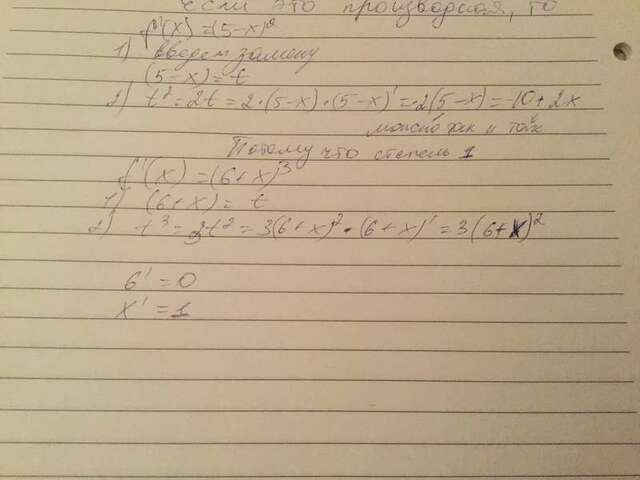 Если это производная, то
f'(x) = (5-x)²
1) введем замену
(5-x) = t
2) t² = 2t = 2·(5-x)·(5-x)' = -2(5-x) = -10+2x
можно так и так
Потому что степень 1
f'(x) = (6+x)³
1) (6+x) = t
2) t³ = 3t² = 3(6+x)²·(6+x)' = 3(6+x)²
6' = 0
x' = 1